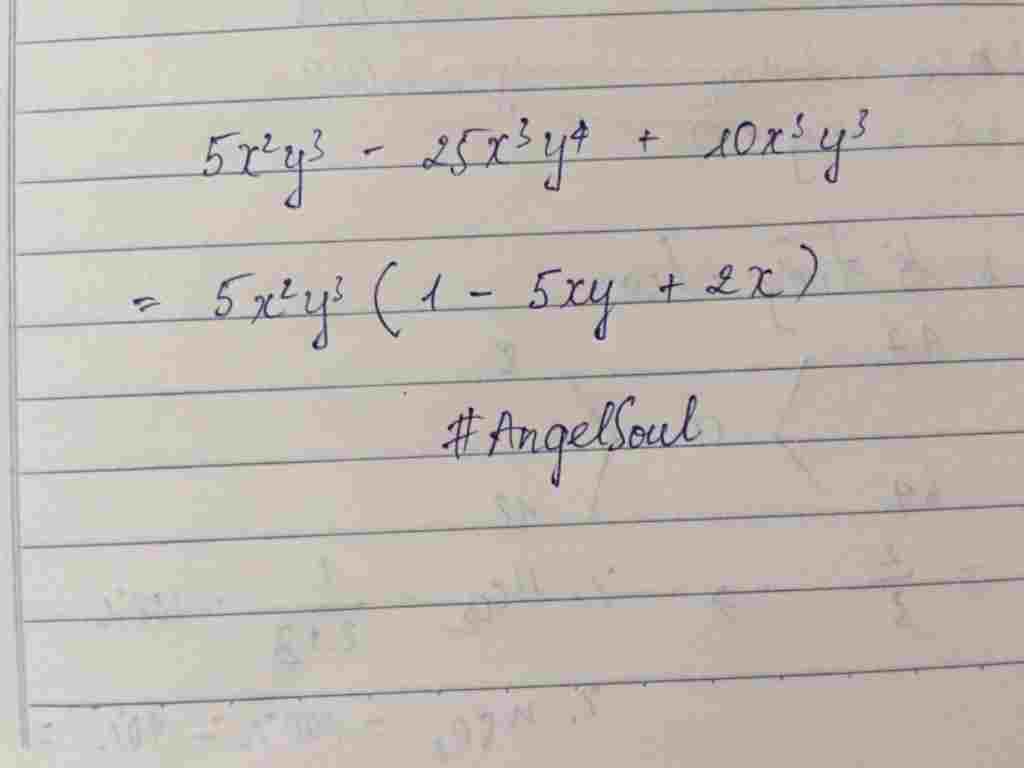 5x²y³ - 25x³y⁴ + 10x³y³
= 5x²y³ (1 - 5xy + 2x)
#AngelSoul